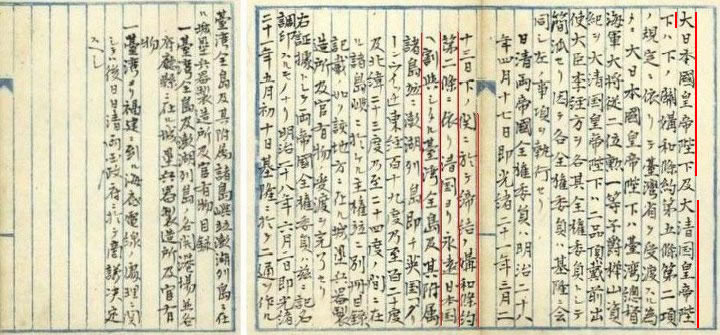 大日本國皇帝陛下及大清国皇帝陛
下ハ下ノ關媾和條約第五條第二項
ノ規定ニ依リテ臺灣省ヲ受渡スル為
メ大日本國皇帝陛下ハ臺灣總督
海軍大将從二位勲一等子爵樺山資
紀ヲ大清国皇帝陛下ハ二品頂戴前出
使大臣李經方ヲ各其全權委員トシテ
簡派セリ因テ各全權委員ハ基隆ニ會
同シ左ノ事項ヲ執行セリ
日清両帝國全權委員ハ明治二十八
年四月十七日即光緒二十一年三月二
十三日下ノ関ニ於テ締結ノ媾和條約
第二條ニ依リ清国ヨリ永遠日本国
ヘ割與シタル臺灣全島及其附属
諸島嶼並澎湖列島即チ英国「グリ
ーンウィッチ」東經百十九度乃至百二十度
及北緯二十三度乃至二十四度ノ間ニ在
ル諸島嶼ニ於ケル主權並ニ別冊目録
記載ノ如ク該地方ニ在ル城塁兵器製
造所及官有物ノ受渡ヲ完了セリ
右証據トシテ両帝國全權委員ハ茲ニ記名
調印スルモノナリ明治二十八年六月二日即光緒
二十一年五月初十日基隆ニ於テ二通ヲ作ル
臺湾全島及其附属諸島嶼並澎湖列島ニ在
ル城塁兵器製造所及官有物目録
一臺湾全島及澎湖列島ノ各開港場並各
府廳縣ニ在ル城塁兵器製造所及官有
物
一臺湾ヨリ福建ニ到ル海底電線ノ處理ニ関
シテハ後日日清両国政府ニ於テ商議決定
スヘシ